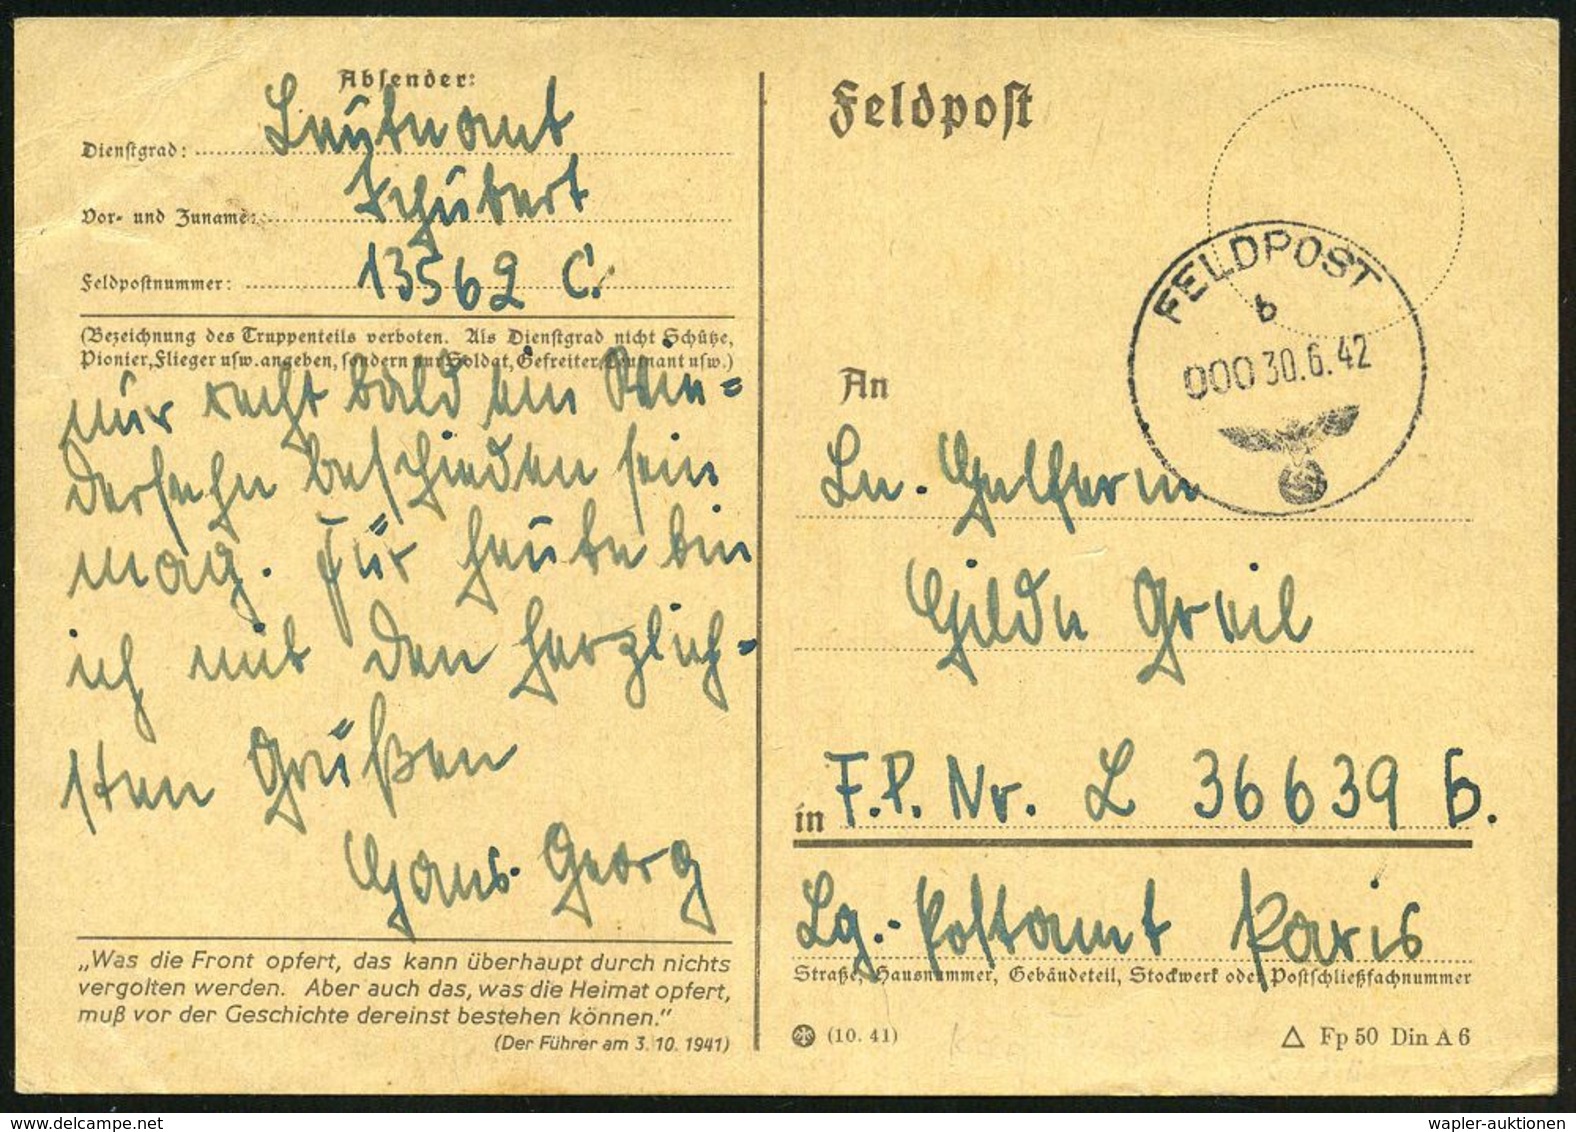 Absender:
Dienstgrad: Leutnant
Vor- und Zuname: Schubert
Feldpostnummer: 13562 C.
(Bezeichnung des Truppenteils verboten. Als Dienstgrad nicht Schütze,
Pionier, Flieger usw. angeben, sondern nur Soldat, Gefreiter, Leutnant usw.)
nur recht bald ein Wie=
dersehn beschieden sein
mag. Für heute bin
ich mit den herzlich=
sten Grüßen
Hans-Georg
„Was die Front opfert, das kann überhaupt durch nichts
vergolten werden. Aber auch das, was die Heimat opfert,
muß vor der Geschichte dereinst bestehen können."
(Der Führer am 3. 10. 1941)
Feldpost
FELDPOST
b
000 30.6.42
An
Ln.-Helferin
Hilde Greil
in F.P. Nr. L 36639 b.
Lg.-Postamt Paris
Straße, Hausnummer, Gebäudeteil, Stockwerk oder Postschließfachnummer
(10. 41)
Fp 50 Din A 6
wapler-auktionen